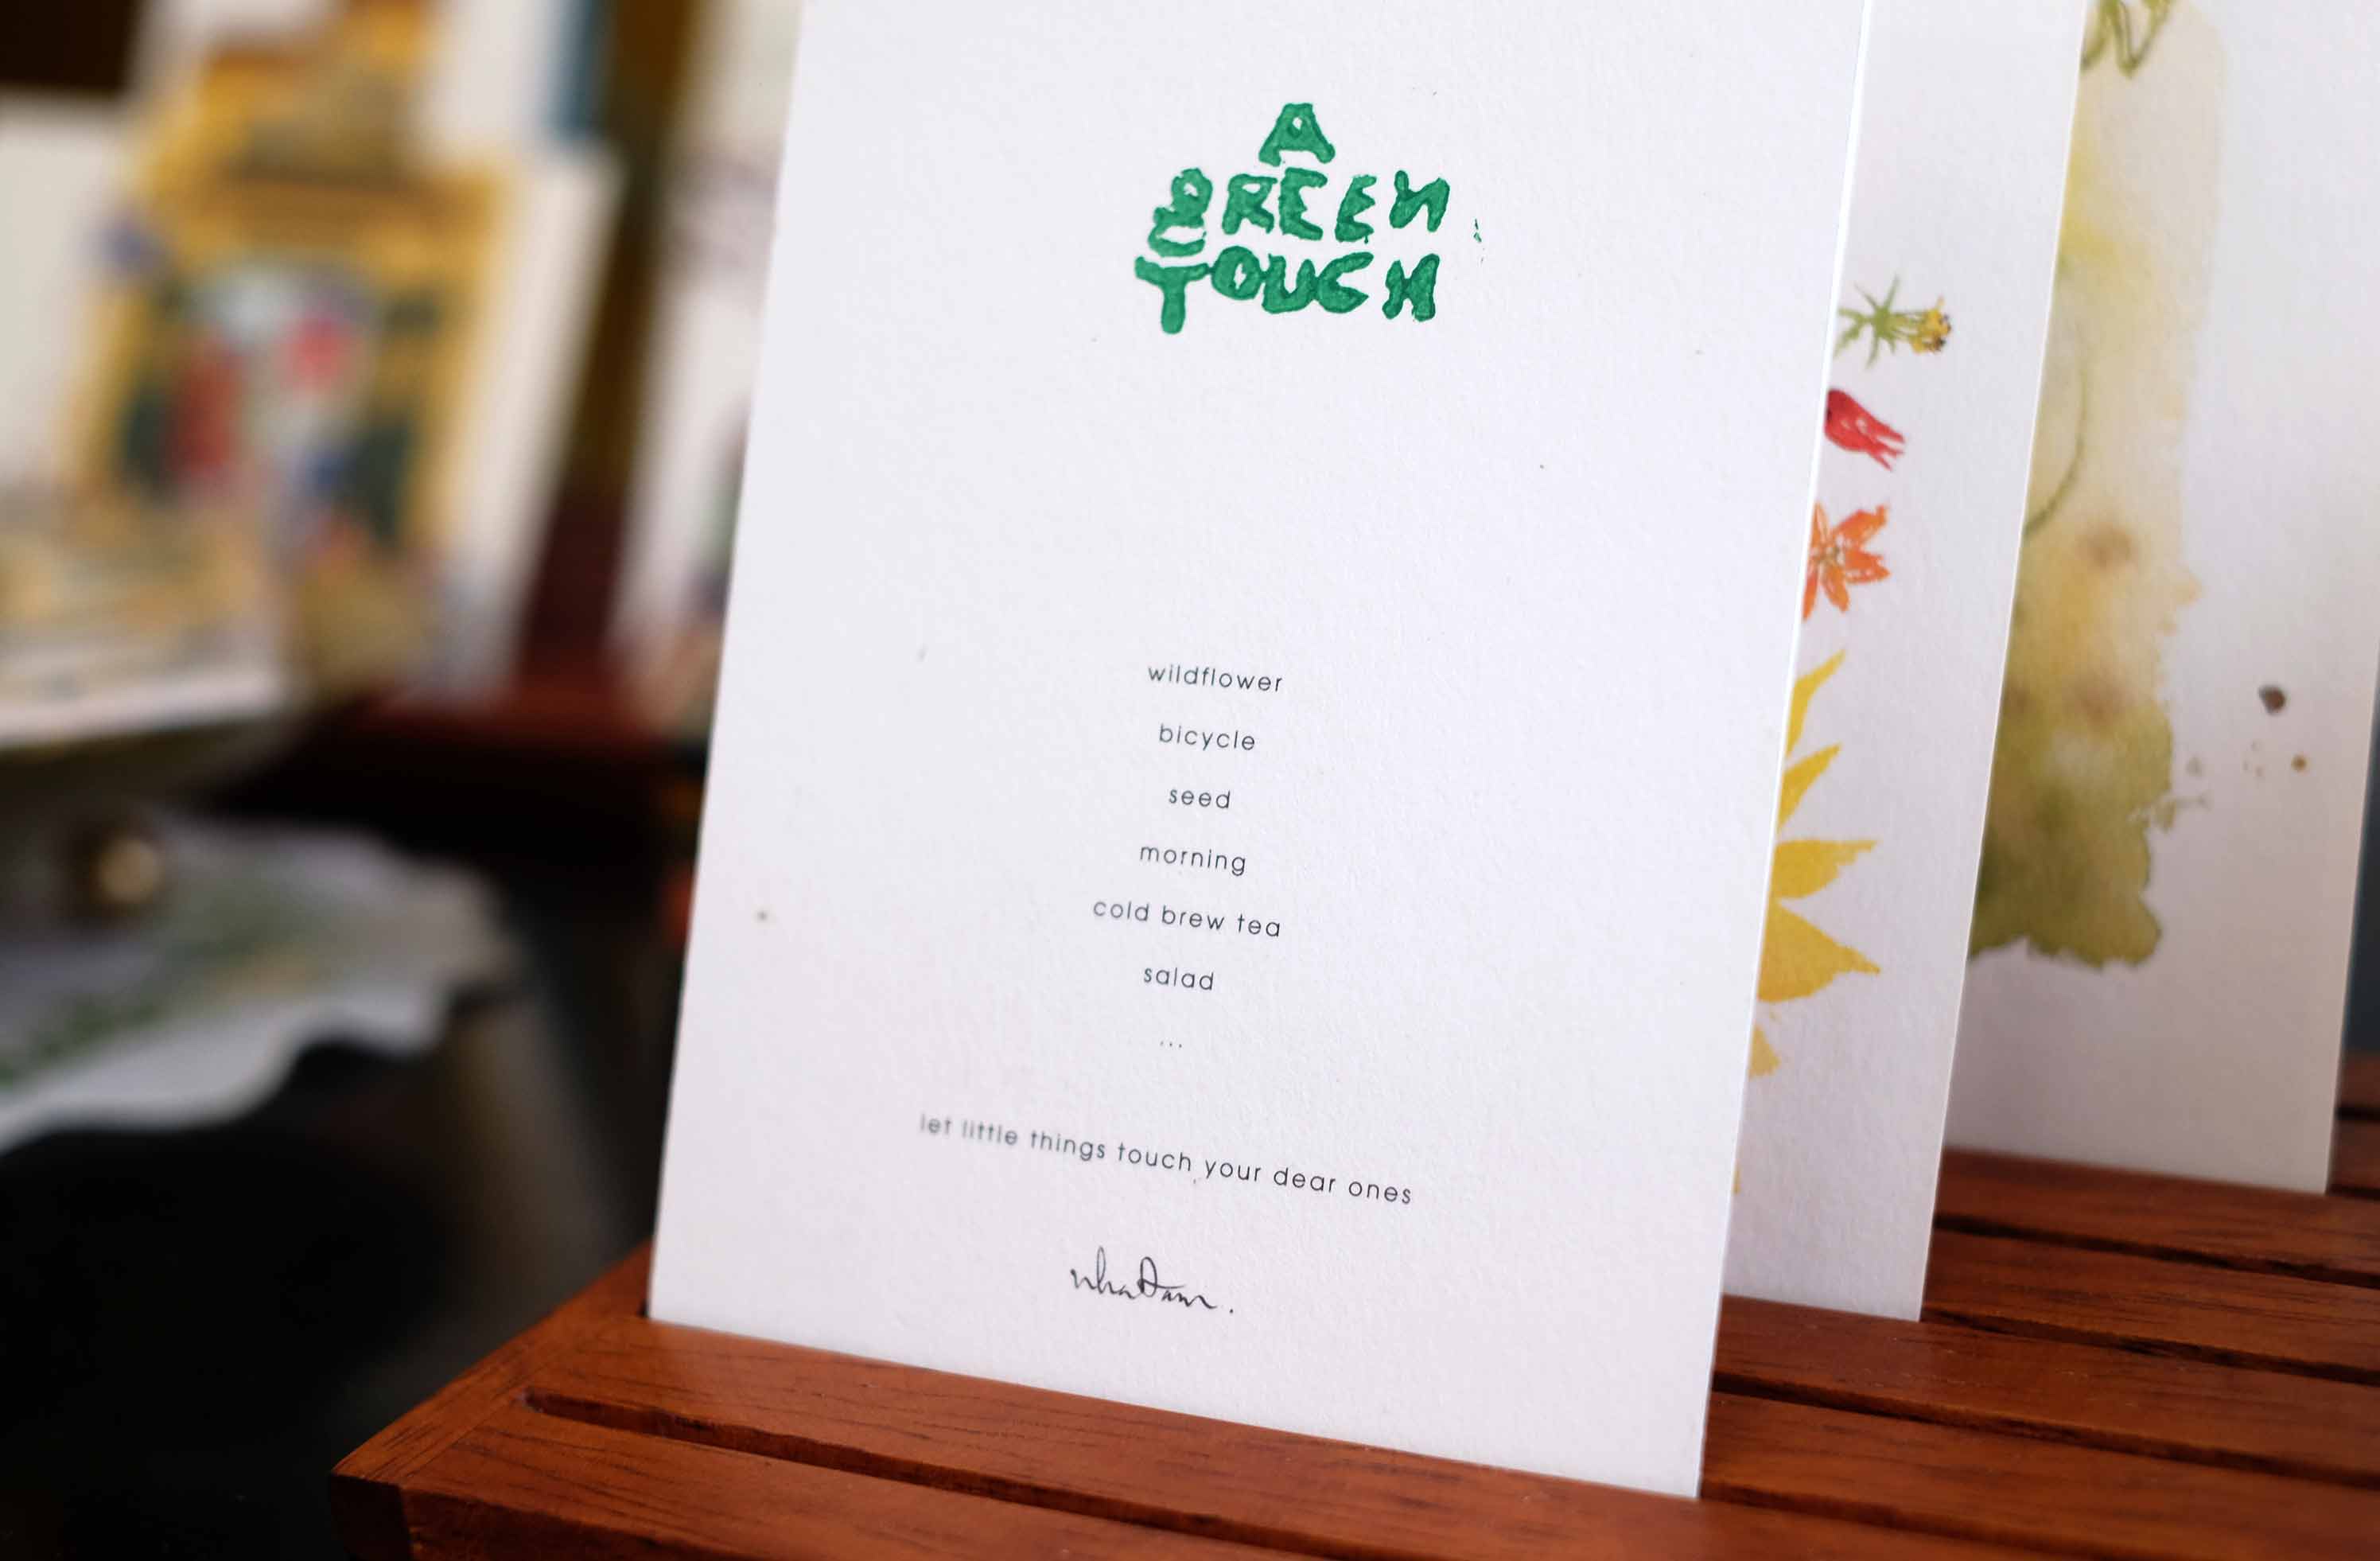 A
gREEN
TOUCH
wildflower
bicycle
seed
morning
cold brew tea
salad
...
let little things touch your dear ones
nhaĐam.